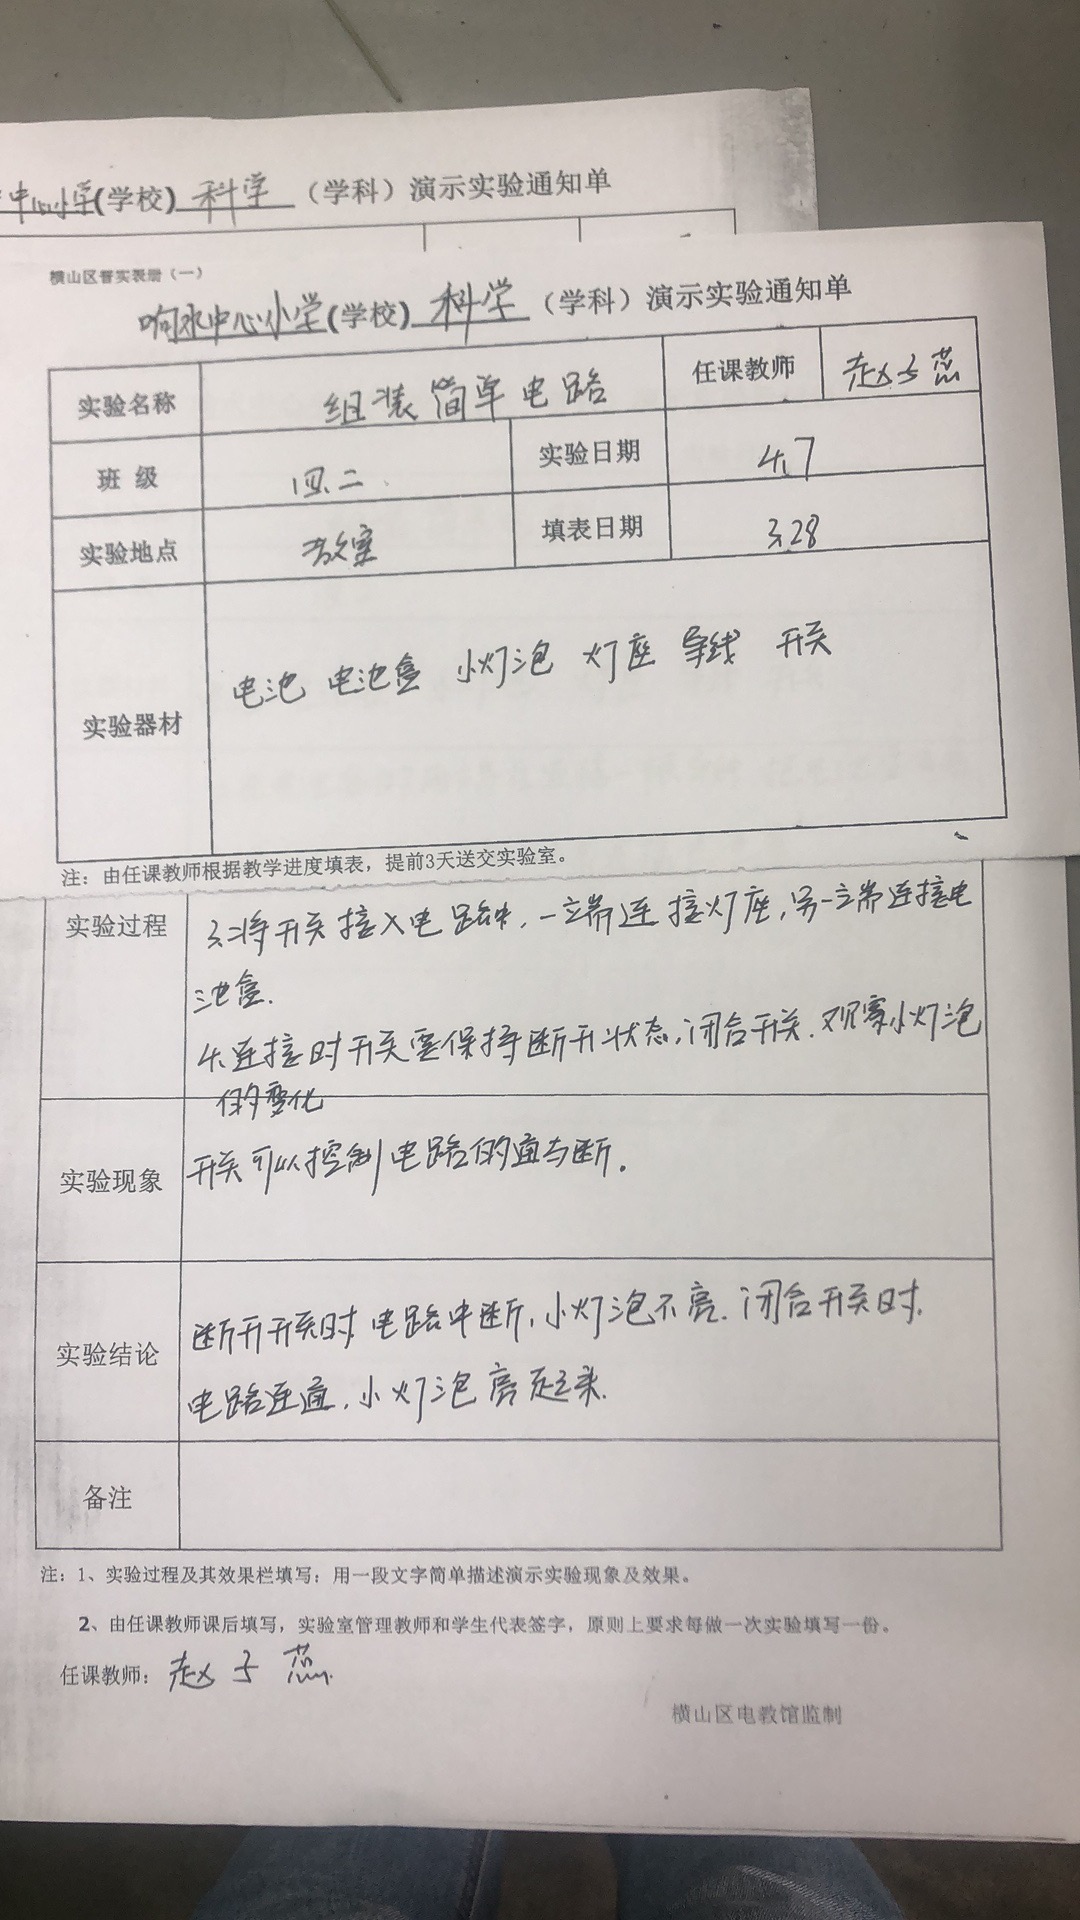 中心小学(学校) 科学 （学科）演示实验通知单
横山区普实表册（一）
响水中心小学(学校) 科学 （学科）演示实验通知单
实验名称 组装简单电路 任课教师 赵子蕊
班 级 四.二. 实验日期 4.7
实验地点 教室 填表日期 3.28
实验器材 电池 电池盒 小灯泡 灯座 导线 开关
注：由任课教师根据教学进度填表，提前3天送交实验室。
实验过程 3.将开关接入电路中，一端连接灯座，另一端连接电
池盒.
4.连接时开关要保持断开状态，闭合开关.观察小灯泡
的变化
实验现象 开关可以控制电路的通与断.
实验结论 断开开关时 电路中断，小灯泡不亮.闭合开关时.
电路连通，小灯泡亮起来.
备注
注：1、实验过程及其效果栏填写：用一段文字简单描述演示实验现象及效果。
2、由任课教师课后填写，实验室管理教师和学生代表签字，原则上要求每做一次实验填写一份。
任课教师：赵子蕊
横山区电教馆监制